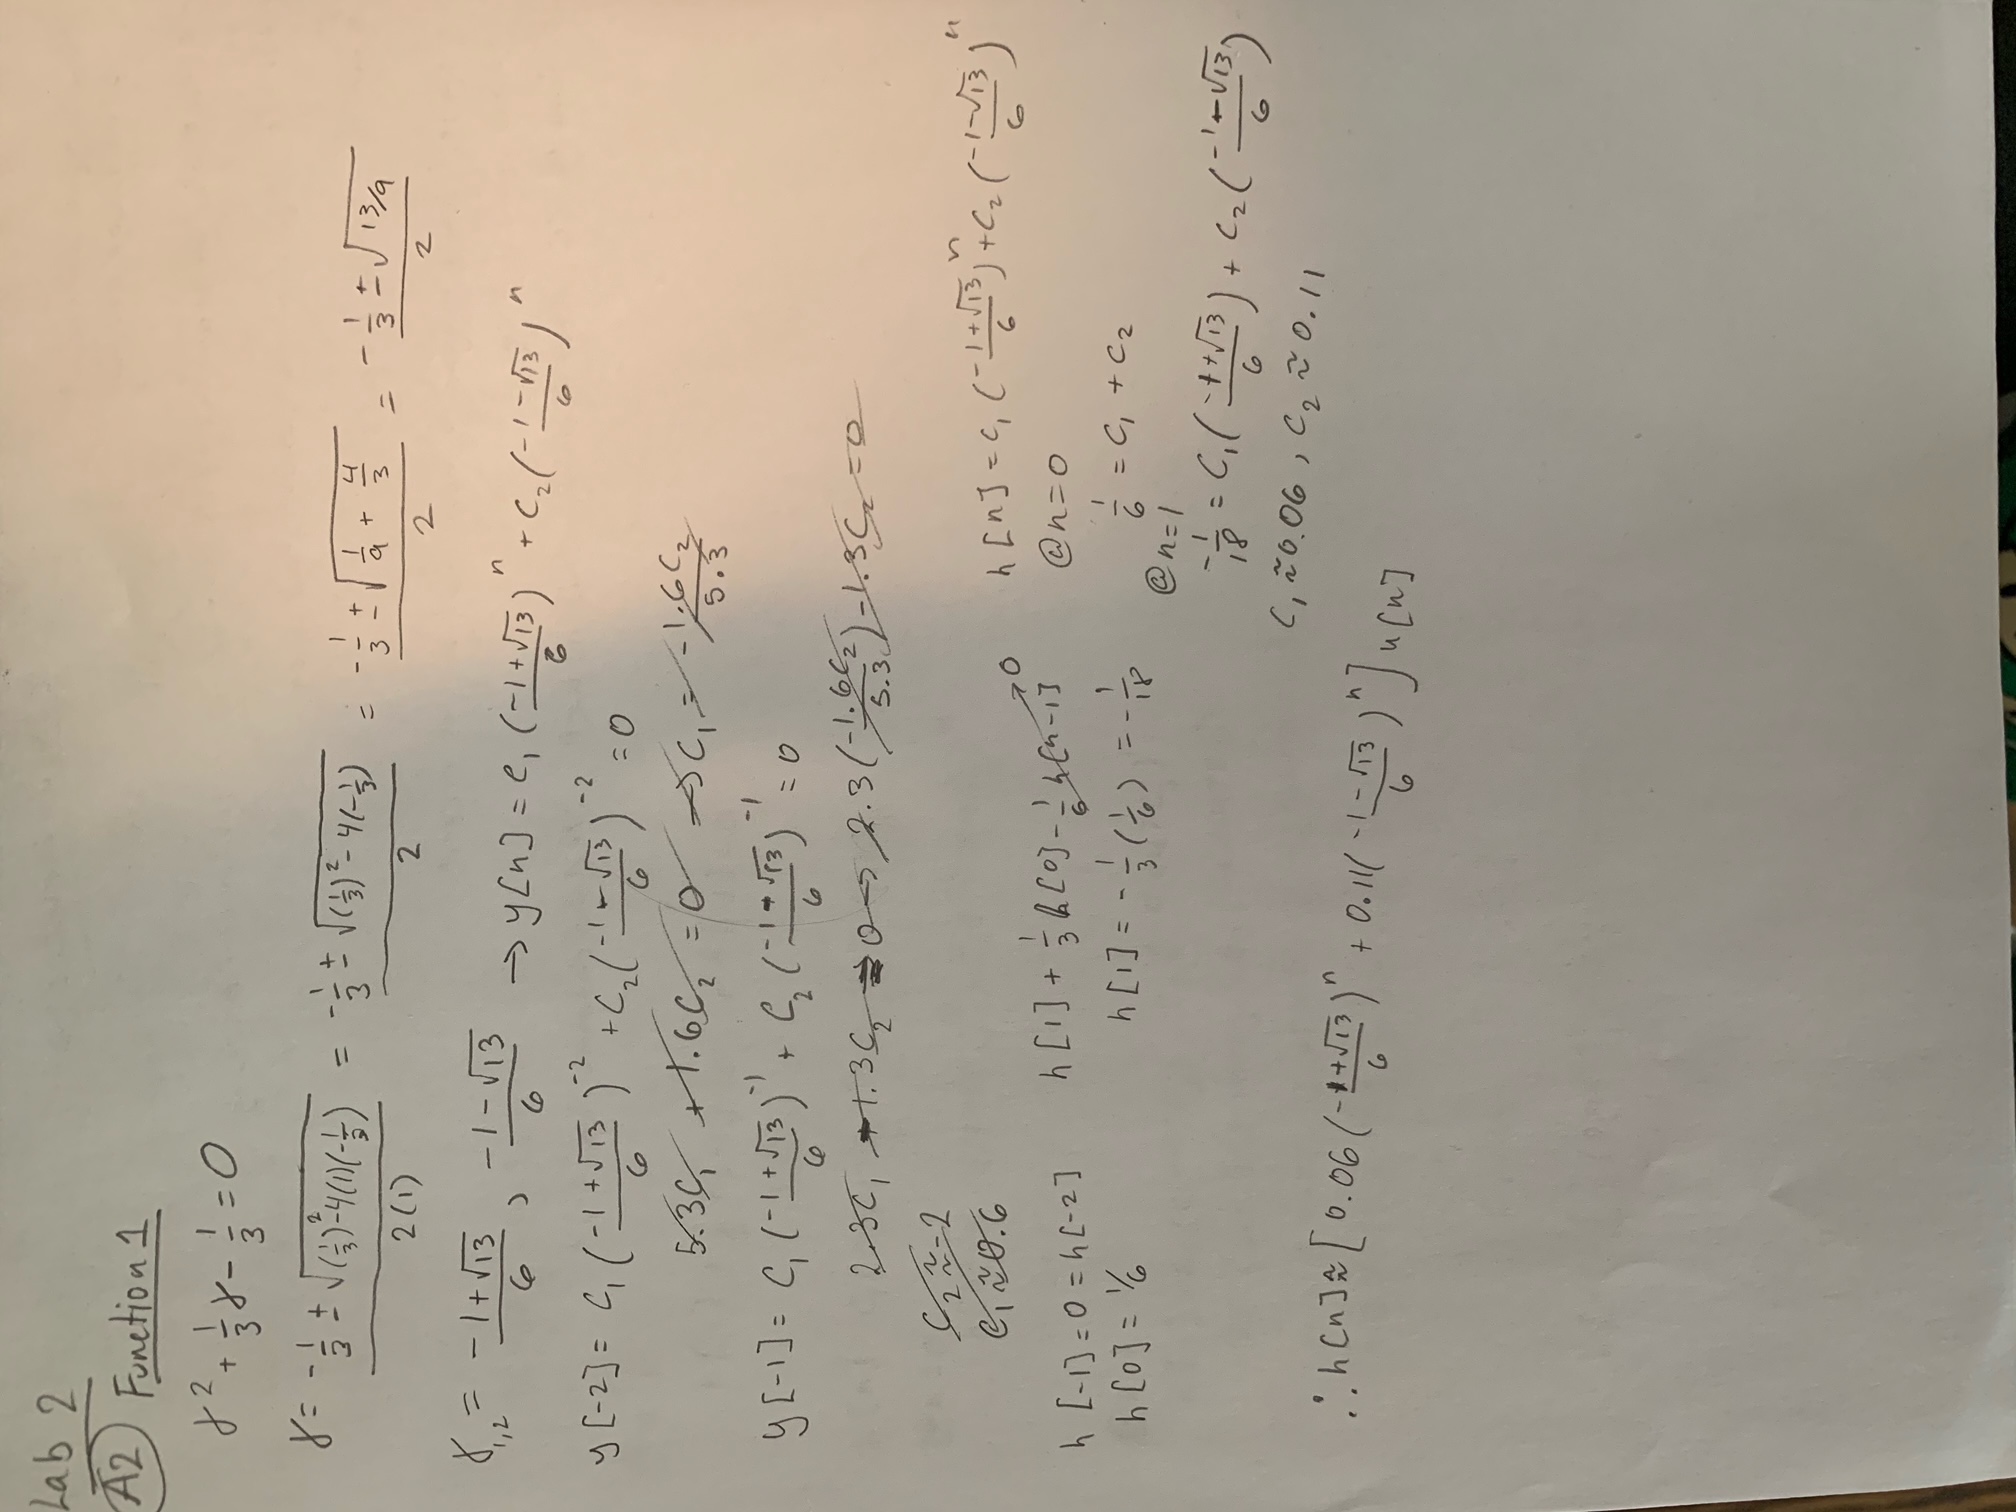 Lab 2
A2 Function 1
γ² + 1/3 γ - 1/3 = 0
γ = (-1/3 ± √((1/3)² - 4(1)(-1/3))) / 2(1) = (-1/3 ± √((1/3)² - 4(-1/3))) / 2 = (-1/3 ± √(1/9 + 4/3)) / 2 = (-1/3 ± √(13/9)) / 2
γ₁,₂ = (-1+√13)/6 , (-1-√13)/6 → y[n] = C₁((-1+√13)/6)ⁿ + C₂((-1-√13)/6)ⁿ
y[-2] = C₁((-1+√13)/6)⁻² + C₂((-1-√13)/6)⁻² = 0
5.3C₁ + 1.6C₂ = 0 → C₁ = -1.6C₂/5.3
y[-1] = C₁((-1+√13)/6)⁻¹ + C₂((-1-√13)/6)⁻¹ = 0
2.3C₁ - 1.3C₂ = 0 → 2.3(-1.6C₂/5.3) - 1.3C₂ = 0
C₂ ≈ -2
C₁ ≈ 0.6
h[-1] = 0 = h[-2]
h[0] = 1/6
h[1] + 1/3 h[0] - 1/6 h[n-1] → 0
h[1] = -1/3 (1/6) = -1/18
h[n] = C₁((-1+√13)/6)ⁿ + C₂((-1-√13)/6)ⁿ
@n=0
1/6 = C₁ + C₂
@n=1
-1/18 = C₁((-1+√13)/6) + C₂((-1-√13)/6)
C₁ ≈ 0.06 , C₂ ≈ 0.11
∴ h[n] ≈ [0.06((-1+√13)/6)ⁿ + 0.11((-1-√13)/6)ⁿ] u[n]